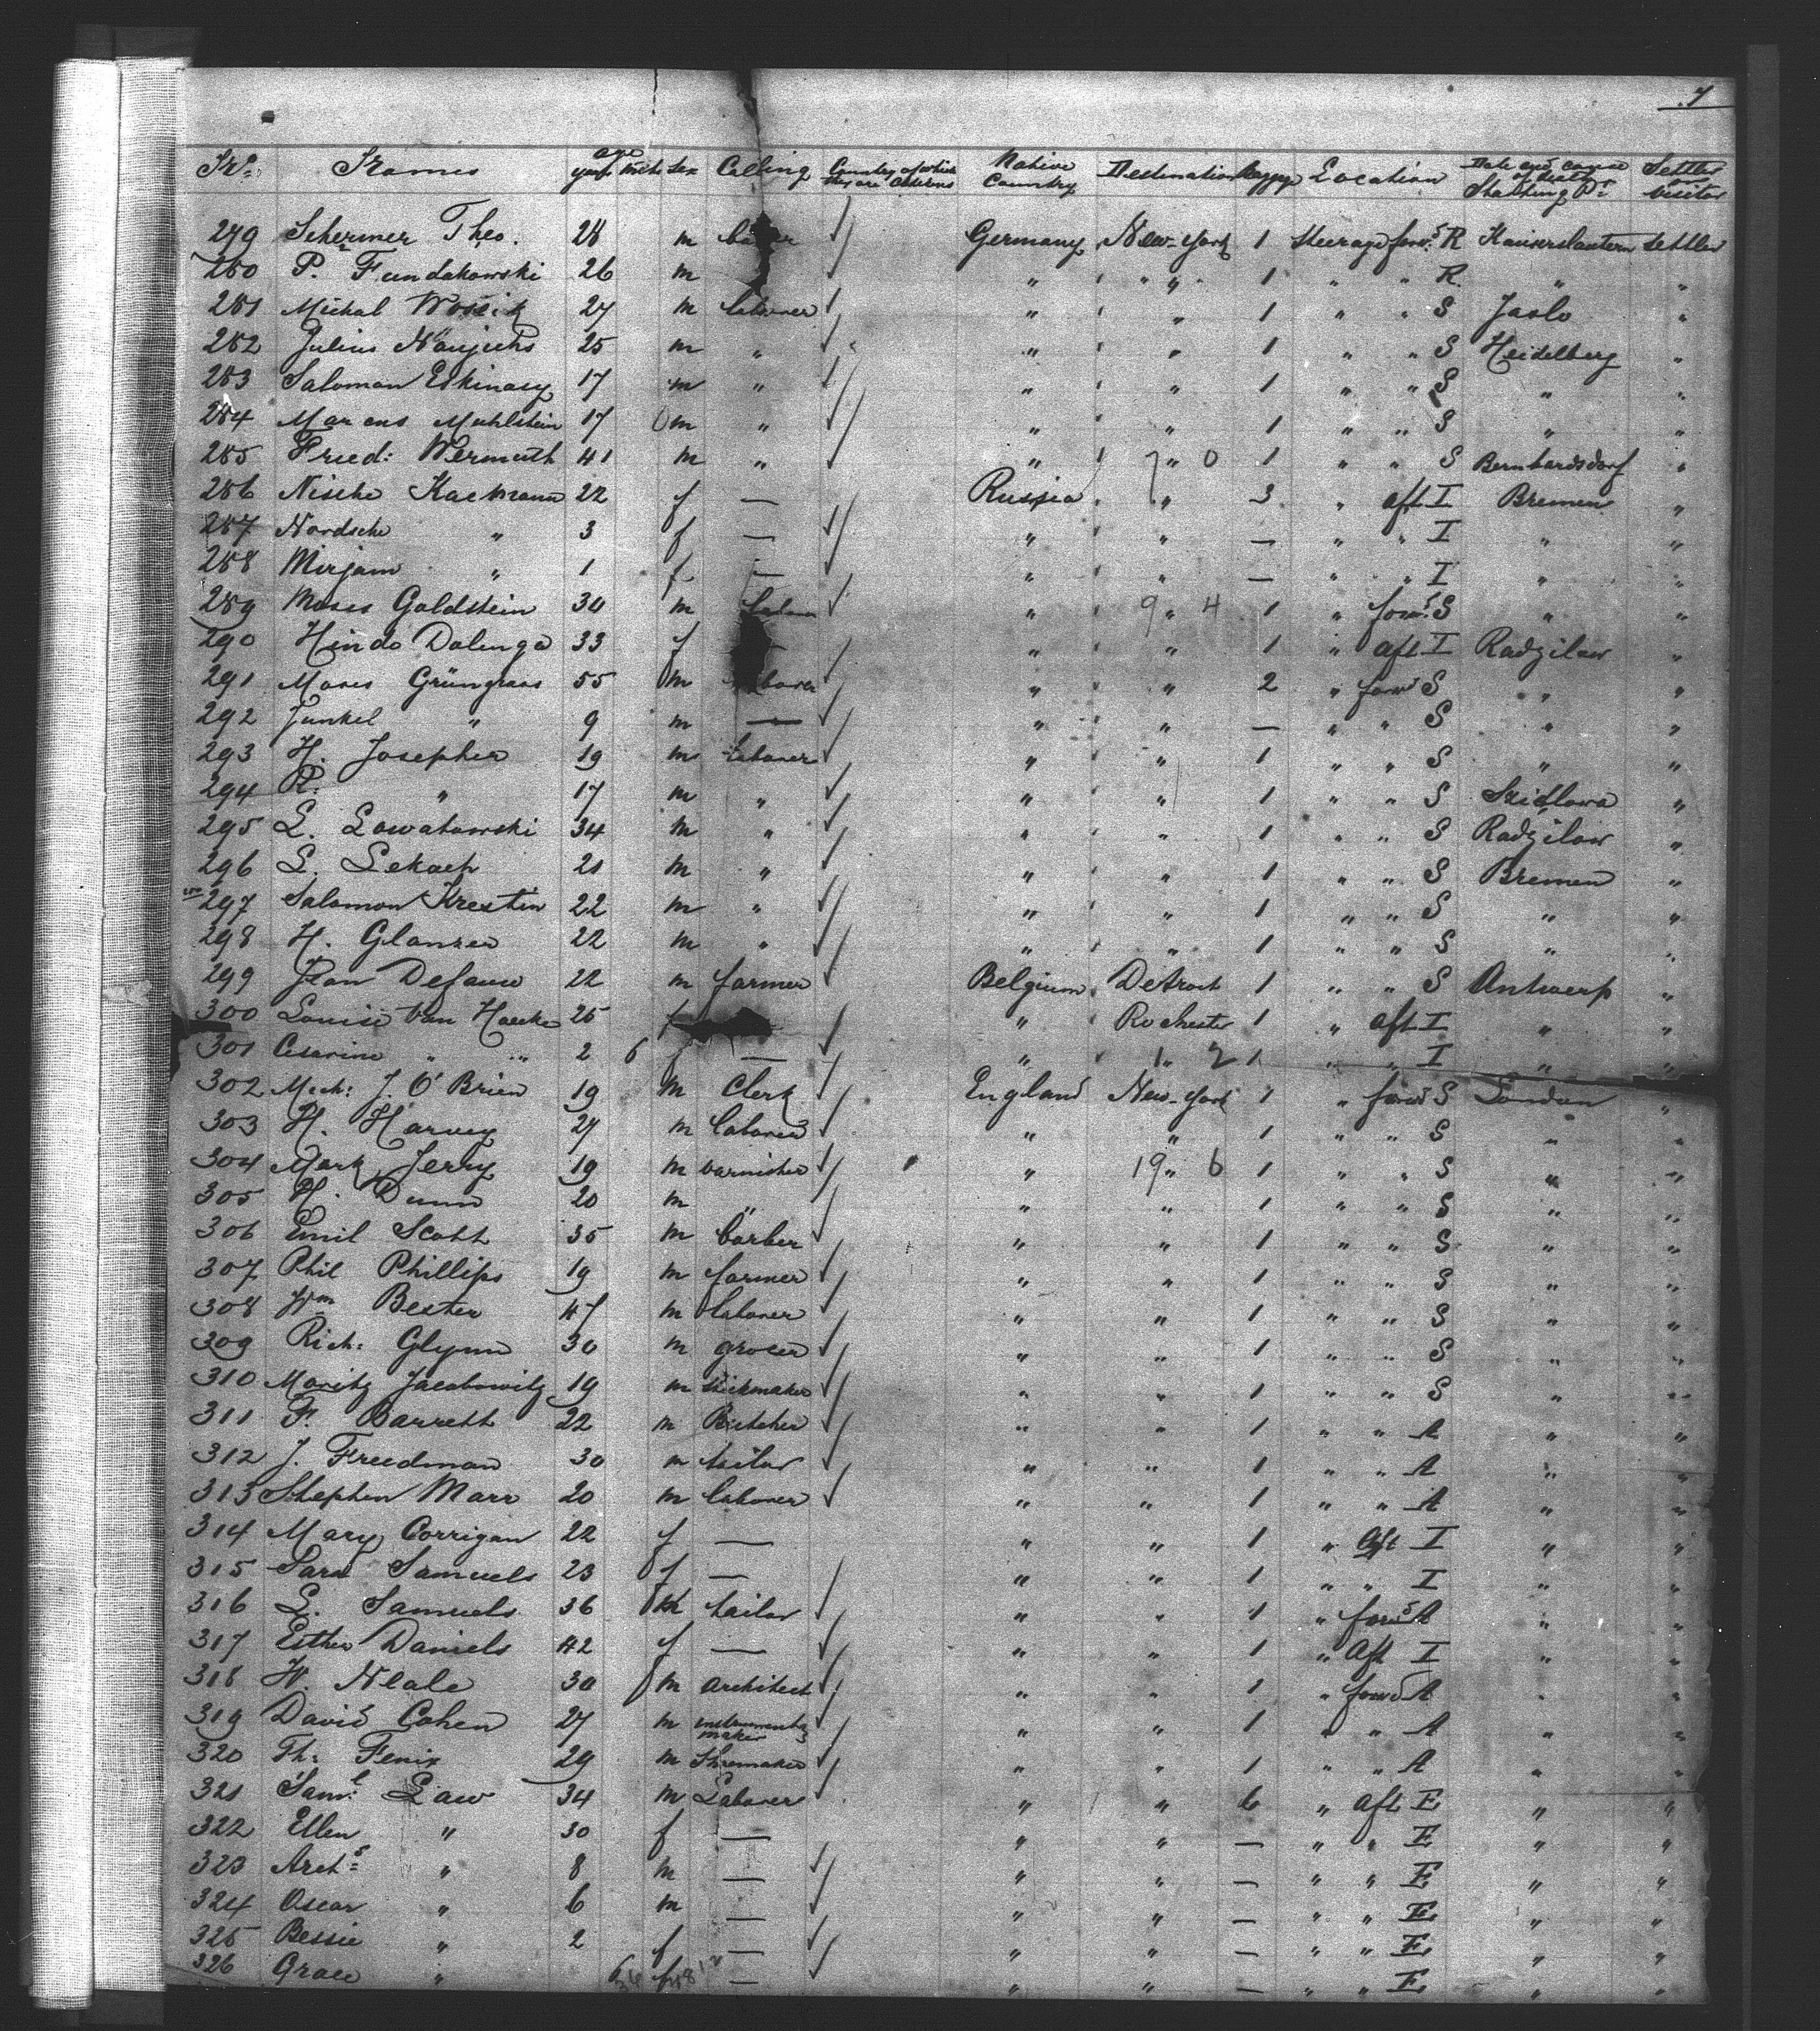 7
No. Names age years mths Sex Calling Country of which they are Citizens Native Country Destination Baggage Location Date and cause of death Starting Pt. Settler visitor
279 Schermer Theo. 28 m Germany New-York 1 Steerage forwd R Kaiserslautern settler
280 P. Fundakowski 26 m " " " 1 " " R " "
281 Michal Woseik 27 m laborer " " 1 " " S Jaslo "
282 Julius 25 m " " " 1 " " S Heidelberg "
283 Saloman Eskinasy 17 m " " " 1 " " S " "
284 Marcus Muhlstein 17 m " " " 1 " " S " "
285 Fried: Wermuth 41 m " " 7 " 0 1 " " S Bernhardsdorf "
286 Nische Kaemann 22 f — Russia " 3 " aft I Bremen "
287 Nordsche " 3 f — " " — " " I " "
288 Mirjam " 1 f — " " — " " I " "
289 Moses Goldstein 30 m labor " 9 " 4 1 " forwd S " "
290 Hinda Dolenga 33 f " " 1 " aft I Radzilaw "
291 Moses Grüngrass 55 m " " 2 " forwd S " "
292 Junkel " 9 m — " " — " " S " "
293 H. Josepher 19 m laborer " " 1 " " S " "
294 R. " 17 m " " " 1 " " S "
295 L. Lowatowski 34 m " " " 1 " " S Radzilow "
296 L. Lekach 21 m " " " 1 " " S Bremen "
297 Salomon Krestin 22 m " " " 1 " " S " "
298 H. Glanzer 22 m " " " 1 " " S " "
299 Jean Defauw 22 m farmer Belgium Detroit 1 " " S Antwerp "
300 Louise Van Haecke 25 f " Rochester 1 " aft I " "
301 Cesarine " " 2 6 f — " 1 " 2 1 " " I " "
302 Mich: J. O'Brien 19 m Clerk England New-York 1 " forwd S London "
303 H. Harvey 27 m laborer " " 1 " " S " "
304 Mark Jerry 19 m varnisher " 19 " 6 1 " " S " "
305 H. Dunn 20 m " " " 1 " " S " "
306 Emil Scott 35 m barber " " 1 " " S " "
307 Phil Phillips 19 m farmer " " 1 " " S " "
308 Wm Bester 47 m laborer " " 1 " " S " "
309 Rich: Glynn 30 m grocer " " 1 " " S " "
310 Moritz Jacobowitz 19 m stickmaker " " 1 " " S " "
311 F. Barrett 22 m Butcher " " 1 " " A " "
312 J. Freedman 30 m tailor " " 1 " " A " "
313 Stephen Marr 20 m laborer " " 1 " " A " "
314 Mary Corrigan 22 f — " " 1 " aft I " "
315 Sara Samuels 23 f — " " 1 " " I " "
316 L. Samuels 36 m tailor " " 1 " forwd A " "
317 Esther Daniels 42 f — " " 1 " Aft I " "
318 W. Neale 30 m architect " " 1 " forwd A " "
319 David Cohen 27 m instruments maker " " 1 " " A " "
320 Th: Fenix 29 m Shoemaker " " 1 " " A " "
321 Saml. Law 34 m Laborer " " 6 " aft E " "
322 Ellen " 30 f — " " — " " E " "
323 Arch: " 8 m — " " — " " E " "
324 Oscar " 6 m — " " — " " E " "
325 Bessie " 2 f — " " — " " E " "
326 Grace " 6 f — " " — " " E " "